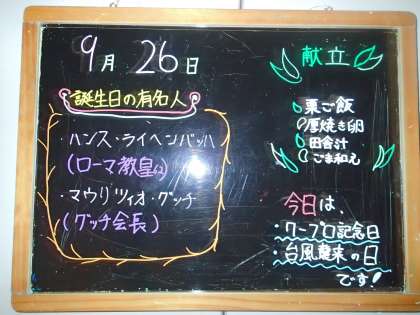 9月26日
誕生日の有名人
・ハンス・ライヘンバッハ
(ローマ教皇62)
・マウリツィオ・グッチ
(グッチ会長)
献立
栗ご飯
厚焼き卵
田舎汁
ごま和え
今日は、
・ワープロ記念日
・台風襲来の日
です!